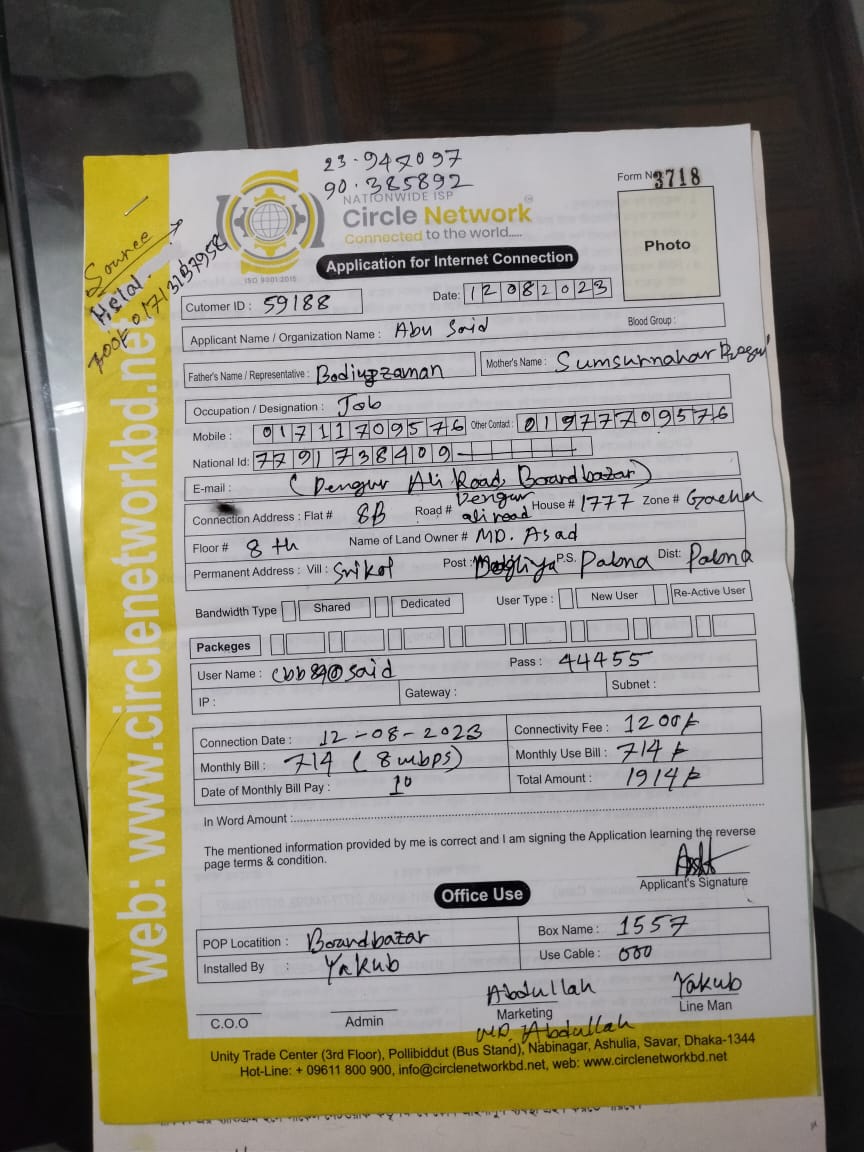 23-947097
90.385892
Form No 3718
NATIONWIDE ISP
Circle Network
Connected to the world.....
ISO 9001:2015
Source
Helal
Photo
Application for Internet Connection
Cutomer ID : 59188
Date: 12082023
Applicant Name / Organization Name : Abu Said
Blood Group :
Father's Name / Representative : Badiuzzaman
Mother's Name : Sumsurnahar Begum
Occupation / Designation : Job
Mobile : 01711709576 Other Contact : 01977709576
National Id: 7791738409
E-mail : (Dengur Ali Road, Boardbazar)
Connection Address : Flat # 8B Road # Dengur ali road House # 1777 Zone # Gacha
Floor # 8 th Name of Land Owner # MD. Asad
Permanent Address : Vill : Srikol Post : P.S. Pabna Dist: Pabna
Bandwidth Type Shared Dedicated User Type : New User Re-Active User
Packeges
User Name : Pass : 44455
IP : Gateway : Subnet :
Connection Date : 12-08-2023 Connectivity Fee : 1200/-
Monthly Bill : 714 (8 mbps) Monthly Use Bill : 714/-
Date of Monthly Bill Pay : 10 Total Amount : 1914/-
In Word Amount :
The mentioned information provided by me is correct and I am signing the Application learning the reverse
page terms & condition.
Applicant's Signature
Office Use
POP Locatition : Boardbazar Box Name : 1557
Installed By : Yakub Use Cable : 000
Abdullah Yakub
C.O.O Admin Marketing Line Man
MD. Abdullah
Unity Trade Center (3rd Floor), Pollibiddut (Bus Stand), Nabinagar, Ashulia, Savar, Dhaka-1344
Hot-Line: + 09611 800 900, info@circlenetworkbd.net, web: www.circlenetworkbd.net
web: www.circlenetworkbd.net